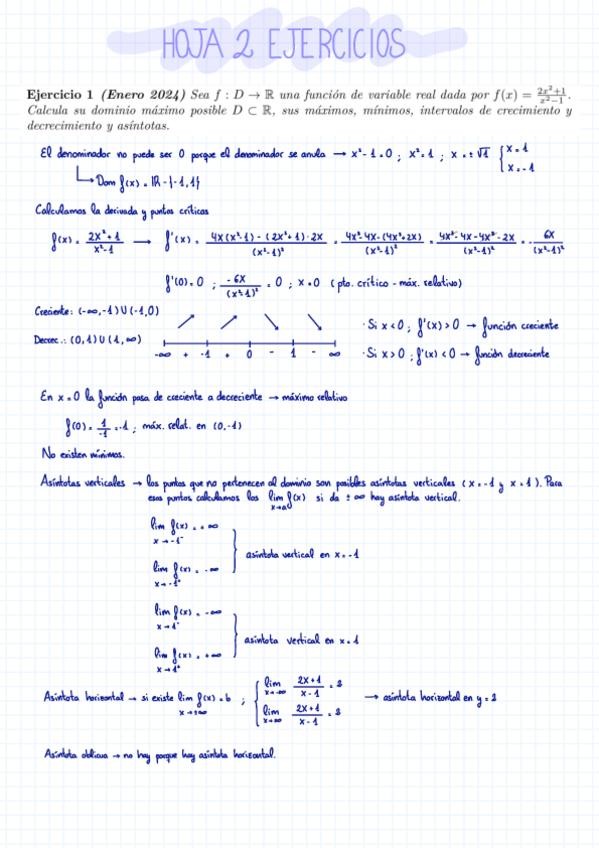 HOJA 2 EJERCICIOS
Ejercicio 1 (Enero 2024) Sea f : D → ℝ una función de variable real dada por f(x) = (2x²+1)/(x²−1).
Calcula su dominio máximo posible D ⊂ ℝ, sus máximos, mínimos, intervalos de crecimiento y
decrecimiento y asíntotas.
El denominador no puede ser 0 porque el denominador se anula → x²-1=0 ; x²=1 ; x=±√1 { x=1
x=-1
↳ Dom f(x) = ℝ - {-1,1}
Calculamos la derivada y puntos críticos
f(x) = (2x²+1)/(x²-1) → f'(x) = (4x(x²-1) - (2x²+1)·2x)/(x²-1)² = (4x³-4x-(4x³+2x))/(x²-1)² = (4x³-4x-4x³-2x)/(x²-1)² = -6x/(x²-1)²
f'(x)=0 ; -6x/(x²-1)² = 0 ; x=0 (pto. crítico - máx. relativo)
Creciente: (-∞,-1)∪(-1,0)
Decrec.: (0,1)∪(1,∞)
-∞ + -1 + 0 - 1 - ∞
· Si x<0 ; f'(x)>0 → función creciente
· Si x>0 ; f'(x)<0 → función decreciente
En x=0 la función pasa de creciente a decreciente → máximo relativo
f(0) = 1/-1 = -1 ; máx. relat. en (0,-1)
No existen mínimos.
Asíntotas verticales → los puntos que no pertenecen al dominio son posibles asíntotas verticales (x=-1 y x=1). Para
esos puntos calculamos los lim x→a f(x) si da ±∞ hay asíntota vertical.
lim f(x) = +∞
x→-1⁻
asíntota vertical en x=-1
lim f(x) = -∞
x→-1⁺
lim f(x) = -∞
x→1⁻
asíntota vertical en x=1
lim f(x) = +∞
x→1⁺
Asíntota horizontal → si existe lim x→±∞ f(x) = b ; { lim x→-∞ (2x+1)/(x-1) = 2
lim x→∞ (2x+1)/(x-1) = 2
→ asíntota horizontal en y=2
Asíntota oblicua → no hay porque hay asíntota horizontal.